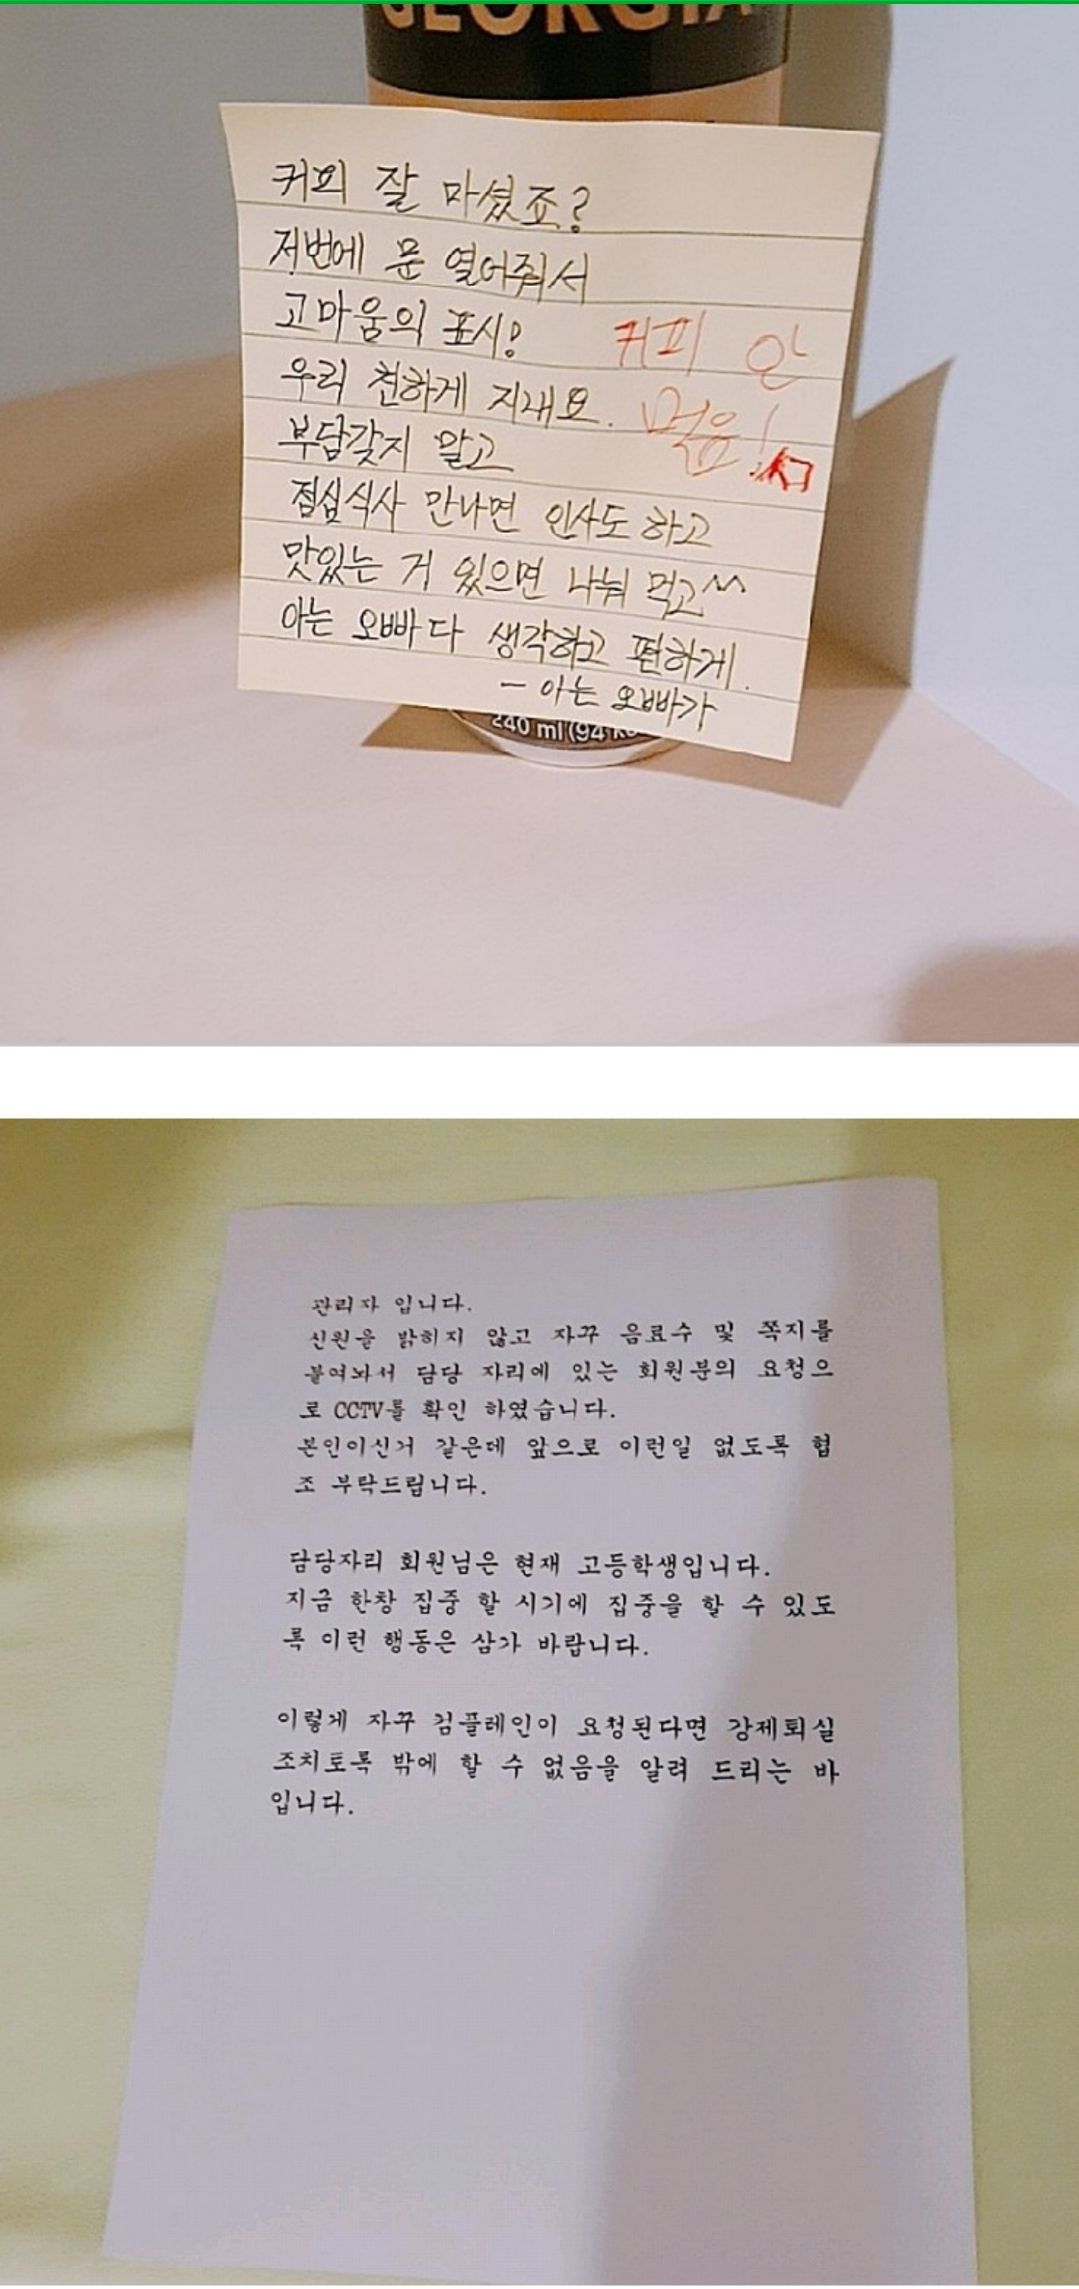 GEORGIA
커피 잘 마셨죠?
저번에 문 열어줘서
고마움의 표시!
커피 안
우리 친하게 지내요.
먹음!
부담갖지 말고
점심식사 만나면 인사도 하고
맛있는 거 있으면 나눠 먹고^^
아는 오빠다 생각하고 편하게.
- 아는 오빠가
240 ml (94
관리자 입니다.
신원을 밝히지 않고 자꾸 음료수 및 쪽지를
붙여놔서 담당 자리에 있는 회원분의 요청으
로 CCTV를 확인 하였습니다.
본인이신거 같은데 앞으로 이런일 없도록 협
조 부탁드립니다.
담당자리 회원님은 현재 고등학생입니다.
지금 한창 집중 할 시기에 집중을 할 수 있도
록 이런 행동은 삼가 바랍니다.
이렇게 자꾸 컴플레인이 요청된다면 강제퇴실
조치토록 밖에 할 수 없음을 알려 드리는 바
입니다.